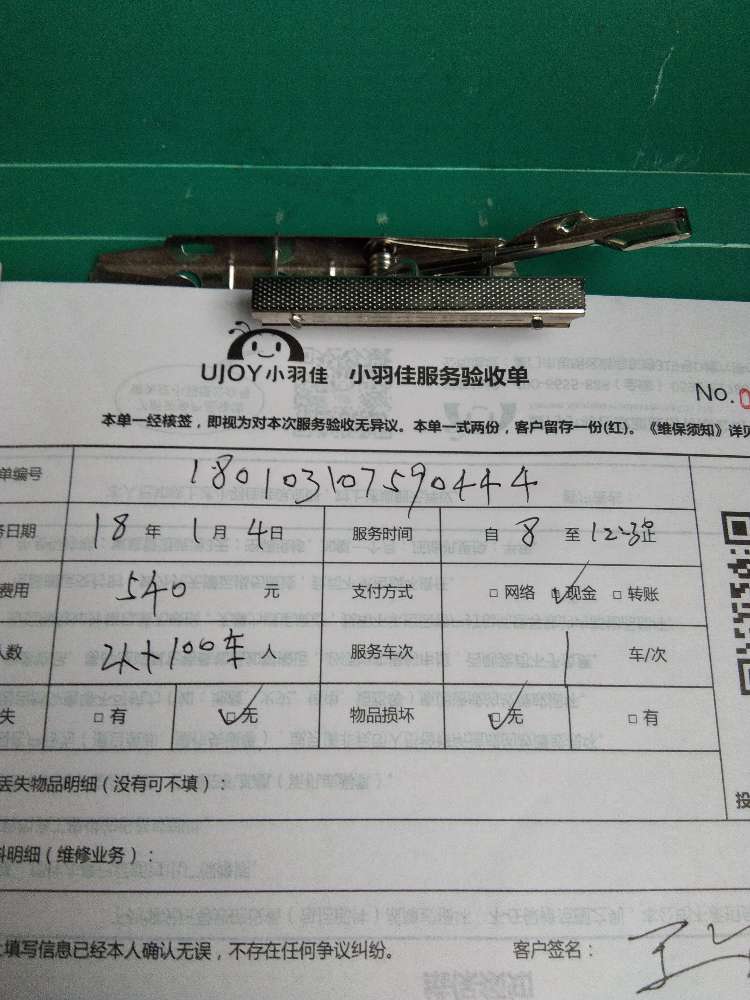 UJOY小羽佳 小羽佳服务验收单
No.0
本单一经核签，即视为对本次服务验收无异议。本单一式两份，客户留存一份(红)。《维保须知》详见
单编号 180103107590444
务日期 18年1月4日 服务时间 自8至12:30止
费用 540元 支付方式 网络 现金 转账
人数 2人+100车人 服务车次 1 车/次
失 有 无 物品损坏 无 有
丢失物品明细（没有可不填）：
料明细（维修业务）：
上填写信息已经本人确认无误，不存在任何争议纠纷。 客户签名：
投